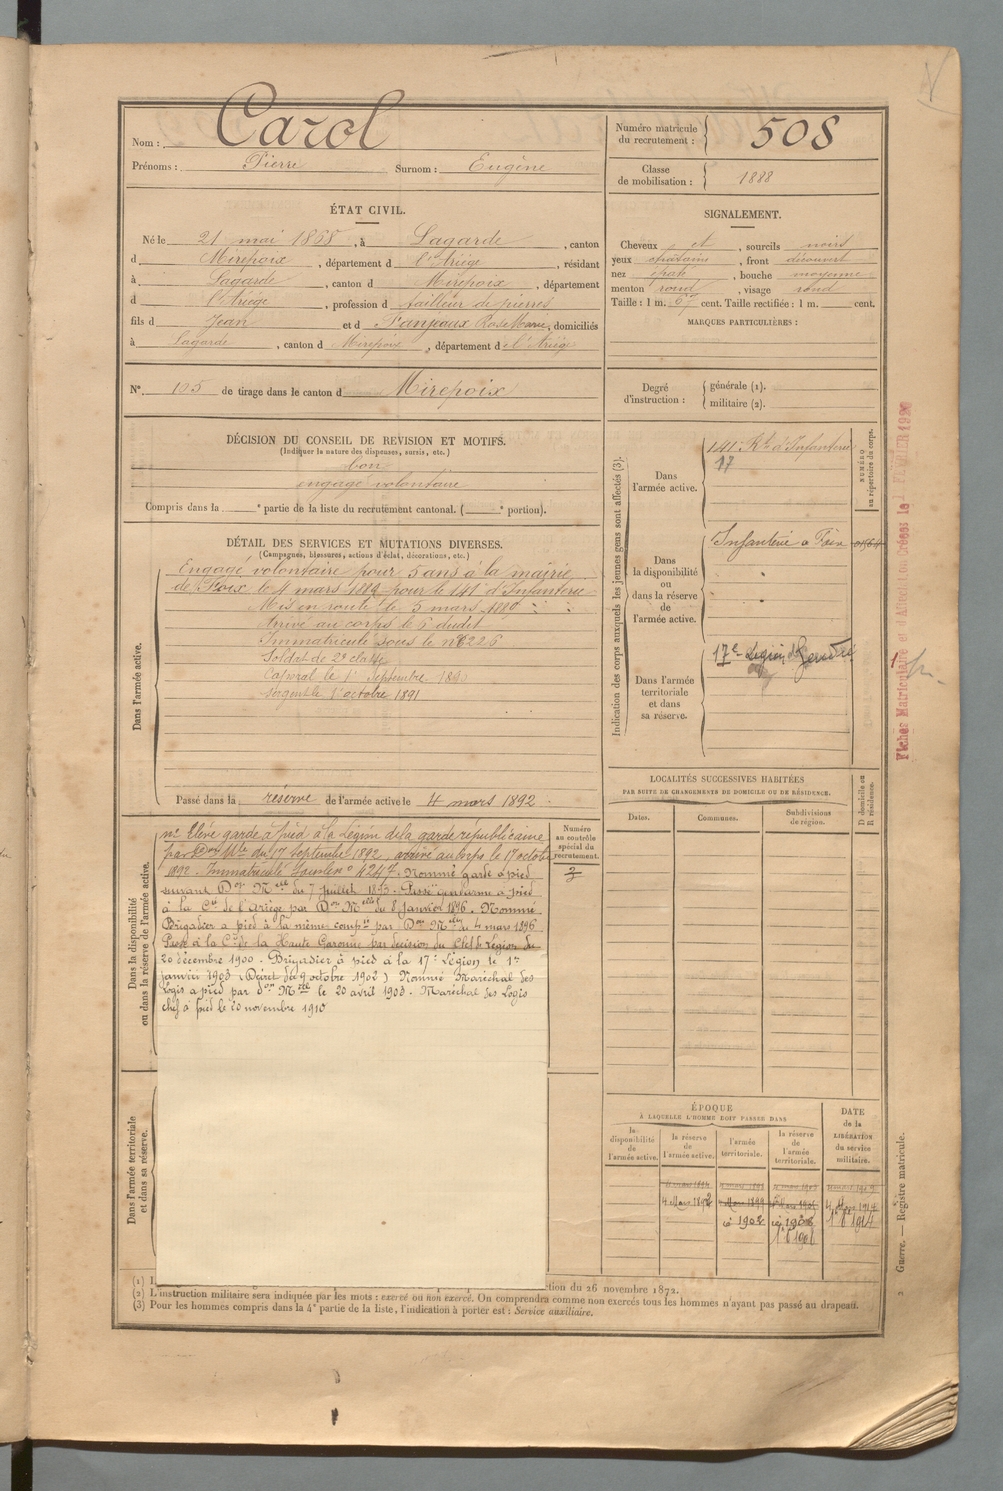 Nom : Carol
Prénoms : Pierre Surnom : Eugène
ÉTAT CIVIL.
Né le 21 mai 1868, à Lagarde, canton
d Mirepoix, département d l'Ariège, résidant
à Lagarde, canton d Mirepoix, département
d l'Ariège, profession d tailleur de pierres
fils d Jean et d Fanjeaux Rose Marie, domiciliés
à Lagarde, canton d Mirepoix, département d l'Ariège
N° 105 de tirage dans le canton d Mirepoix
DÉCISION DU CONSEIL DE REVISION ET MOTIFS.
(Indiquer la nature des dispenses, sursis, etc.)
bon
engagé volontaire
Compris dans la e partie de la liste du recrutement cantonal. ( e portion).
DÉTAIL DES SERVICES ET MUTATIONS DIVERSES.
(Campagnes, blessures, actions d'éclat, décorations, etc.)
Dans l'armée active.
Engagé volontaire pour 5 ans à la mairie
de Foix le 4 mars 1889 pour le 141e d'Infanterie
Mis en route le 5 mars 1889
Arrivé au corps le 6 dudit
Immatriculé sous le n° 6226
Soldat de 2e classe
Caporal le 1r Septembre
Sergent le 1r octobre 1891
Passé dans la réserve de l'armée active le 4 mars 1892.
Dans la disponibilité
ou dans la réserve de l'armée active.
né Elève garde à pied à la Légion de la garde républicaine
par Don Mlle du 17 Septembre 1892, arrivé au corps le 17 octobre
1892. Immatriculé sous le n° 4247. Nommé garde à pied
suivant Don Melle du 7 juillet 1893. Passé gendarme à pied
à la Cie de l'Ariège par Don Melle du 8 janvier 1896. Nommé
Brigadier à pied à la même compie par Don Melle du 4 mars 1896
Passé à la Cie de la Haute Garonne par décision du Chef de Légion du
20 décembre 1900. Brigadier à pied à la 17e Légion le 1er
janvier 1903 (Décret du 9 octobre 1902) Nommé Maréchal des
Logis à pied par don Melle le 20 avril 1903. Maréchal des Logis
chef à pied le 20 novembre 1910
Numéro
au contrôle
spécial du
recrutement.
3
Dans l'armée territoriale
et dans sa réserve.
Numéro matricule
du recrutement : 508
Classe
de mobilisation : 1888
SIGNALEMENT.
Cheveux et, sourcils noirs
yeux châtains, front découvert
nez épaté, bouche moyenne
menton rond, visage rond
Taille : 1 m. cent. Taille rectifiée : 1 m. cent.
MARQUES PARTICULIÈRES :
Degré
d'instruction :
générale (1).
militaire (2).
Indication des corps auxquels les jeunes gens sont affectés (3).
NUMÉRO
au répertoire du corps.
Dans
l'armée active.
141e Rt d'Infanterie
17
Dans
la disponibilité
ou
dans la réserve
de
l'armée active.
Infanterie à Foix
Dans l'armée
territoriale
et dans
sa réserve.
17e Légion de Gendrie
LOCALITÉS SUCCESSIVES HABITÉES
PAR SUITE DE CHANGEMENTS DE DOMICILE OU DE RÉSIDENCE.
Dates. Communes. Subdivisions
de région.
D domicile ou
R résidence.
ÉPOQUE
À LAQUELLE L'HOMME DOIT PASSER DANS
la
disponibilité
de
l'armée active.
la réserve
de
l'armée active.
l'armée
territoriale.
la réserve
de
l'armée
territoriale.
DATE
de la
LIBÉRATION
du service
militaire.
4 Mars 1892 4 Mars 1899 4 Mars 1914
1902 1908 1r 8 1914
(1) I ction du 26 novembre 1872.
(2) L'instruction militaire sera indiquée par les mots : exercé ou non exercé. On comprendra comme non exercés tous les hommes n'ayant pas passé au drapeau.
(3) Pour les hommes compris dans la 4e partie de la liste, l'indication à porter est : Service auxiliaire.
Guerre. — Registre matricule.
Fiches Matriculaire et d'Affectation créées le 1 FÉVRIER 1920